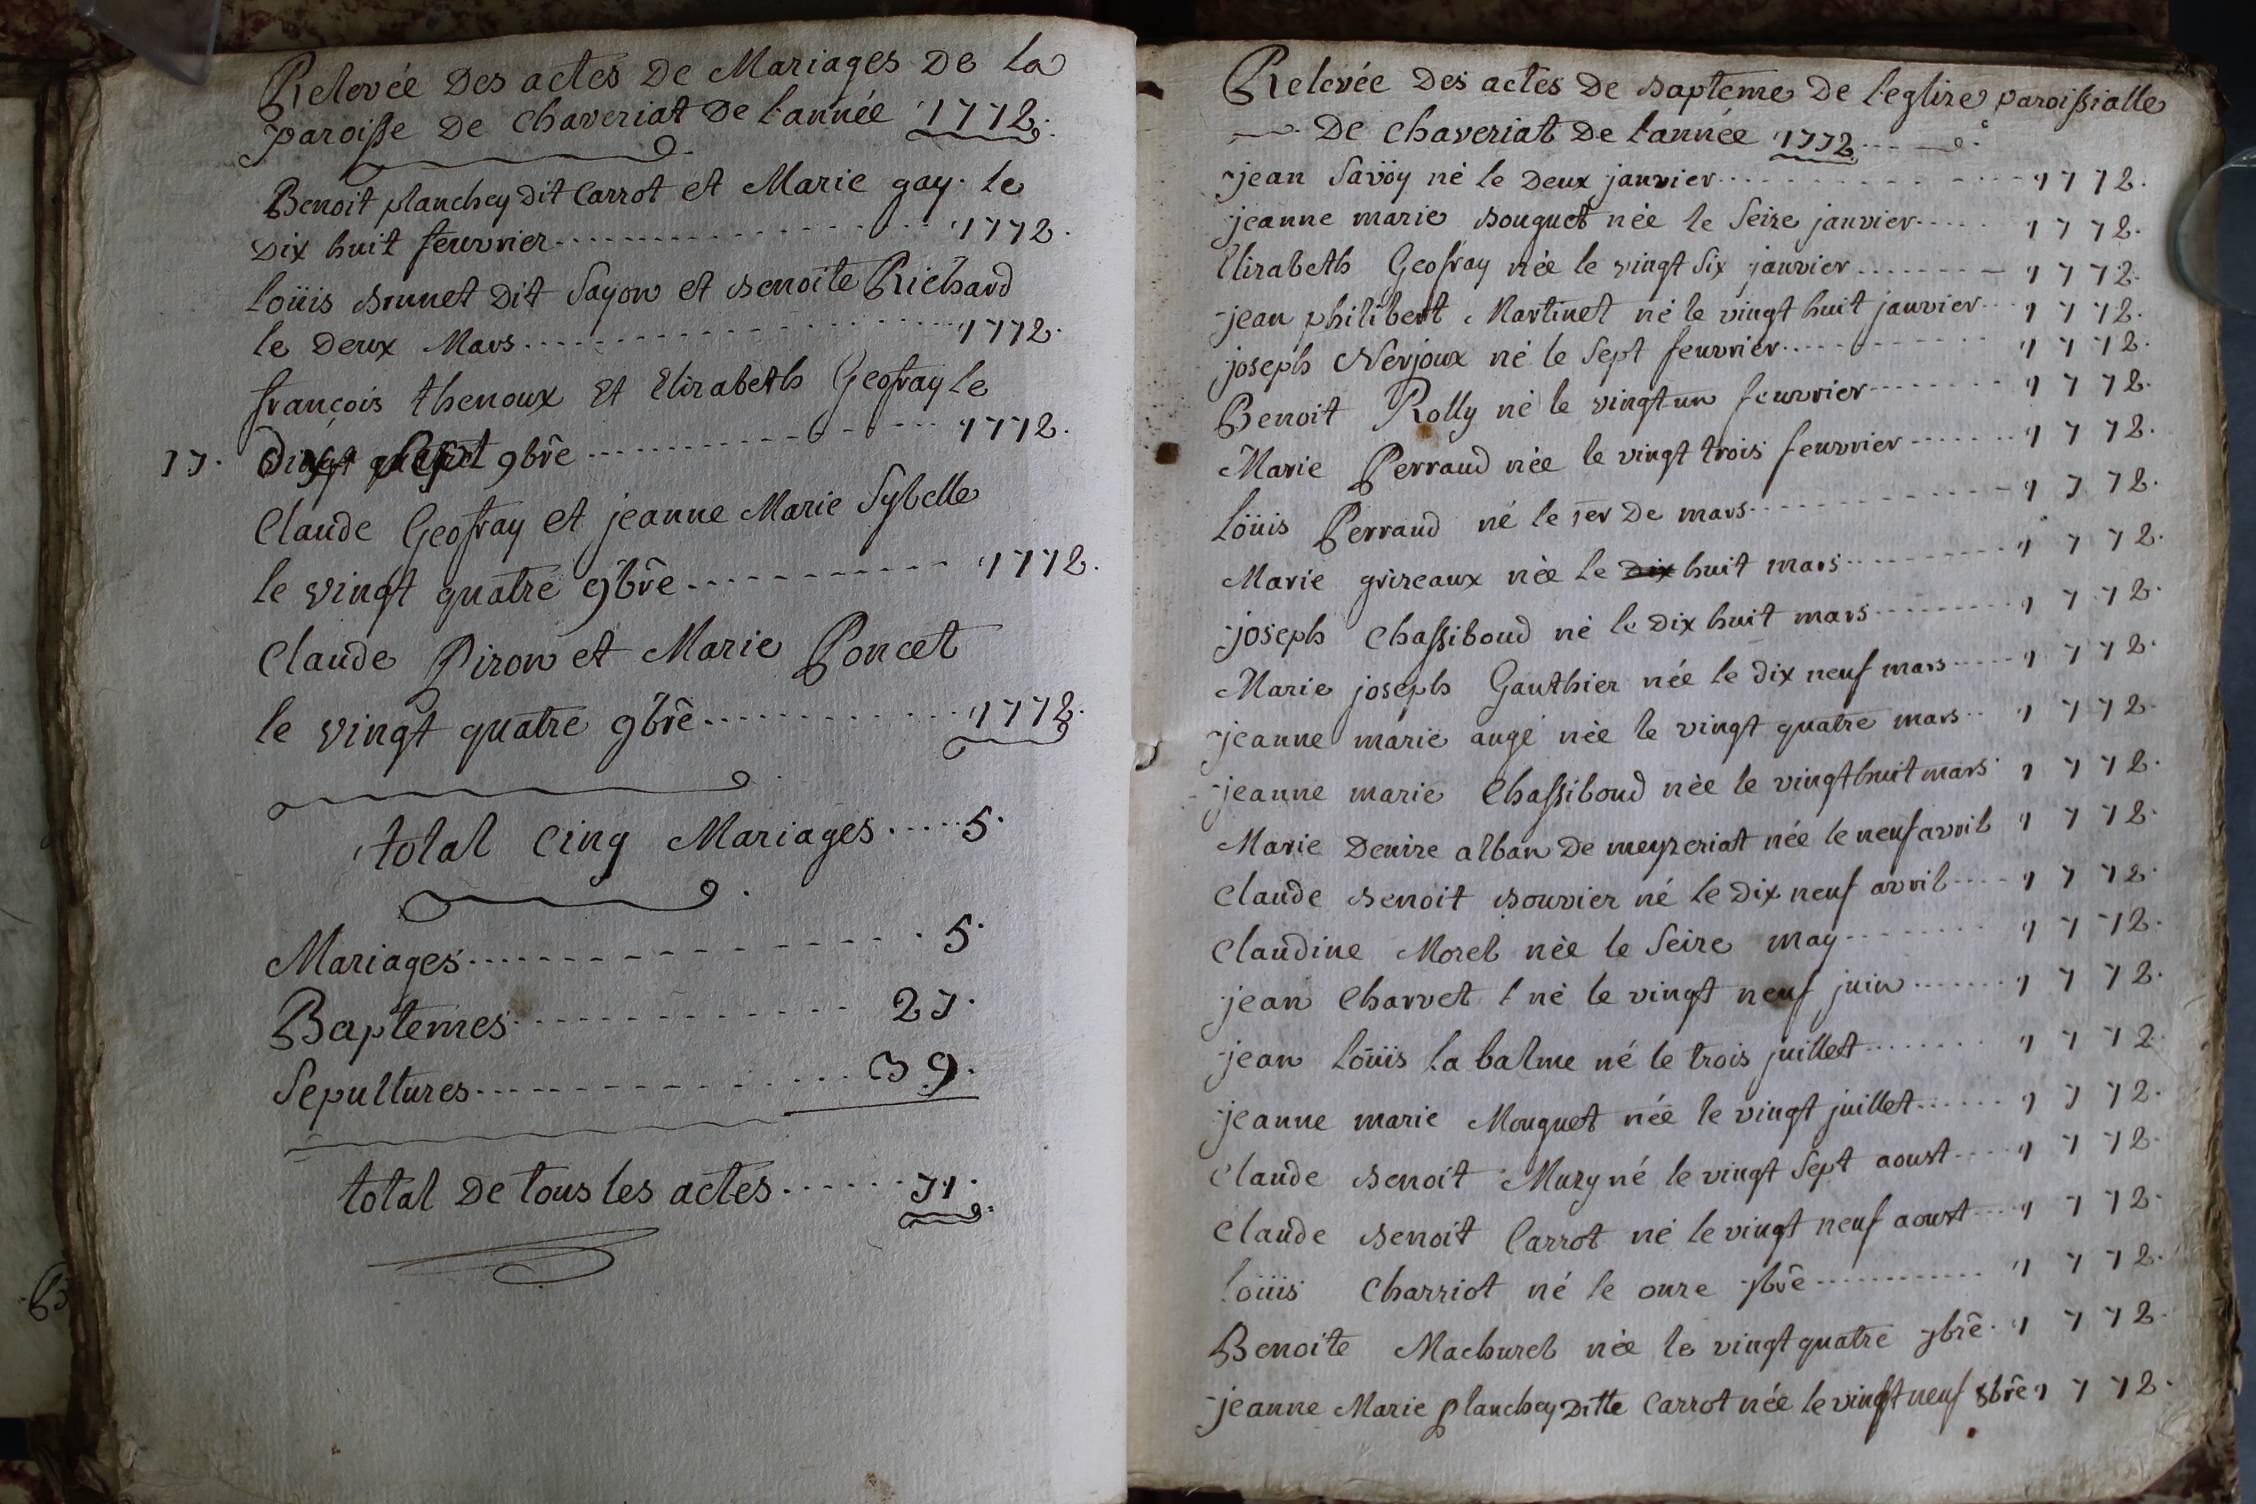 Relevée Des actes De Mariages De La
paroisse De Chaveriat De l'année 1772.
Benoit planchey dit Carrot et Marie gay. le
Dix huit feuvrier 1772.
Loüis Brunet Dit Sayon et Benoite Richard
le Deux Mars 1772.
françois thenoux Et Elizabeth Geofray le
17. 9bre 1772.
Claude Geofray et jeanne Marie Sybelle
le vingt quatre 9bre 1772.
Claude Piron et Marie Poncet
le vingt quatre 9bre 1772.
total Cinq Mariages 5.
Mariages 5.
Baptemes 27.
Sepultures 39.
total De tous les actes 71.
Relevée Des actes De Bapteme De l'eglize paroissialle
De chaveriat De l'année 1772
jean Savöy né le Deux janvier 1772.
jeanne marie Bouguet née le Seize janvier 1772.
Elizabeth Geofray née le vingt Six janvier 1772.
jean philibert Martinet né le vingt huit janvier 1772.
joseph Nerjoux né le Sept feuvrier 1772.
Benoit Rolly né le vingt un feuvrier 1772.
Marie Perraud née le vingt trois feuvrier 1772.
Loüis Perraud né le 1er De mars 1772.
Marie grizeaux née le Dix huit mars 1772.
joseph Chassiboud né le Dix huit mars 1772.
Marie joseph Gauthier née le Dix neuf mars 1772.
jeanne marie augé née le vingt quatre mars 1772.
jeanne marie Chassiboud née le vingt huit mars 1772.
Marie Denize alban De meyzeriat née le neuf avril 1772.
Claude Benoit Bouvier né le Dix neuf avril 1772.
Claudine Morel née le Seize may 1772.
jean Charvet né le vingt neuf juin 1772.
jean Loüis La balme né le trois juillet 1772
jeanne marie Mouguet née le vingt juillet 1772.
Claude Benoit Muzy né le vingt Sept aoust 1772.
Claude Benoit Carrot né le vingt neuf aoust 1772.
Loüis Charriot né le onze 7bre 1772.
Benoite Machurel née le vingt quatre 7bre 1772.
jeanne Marie planchey Ditte Carrot née le vingt neuf 8bre 1772.